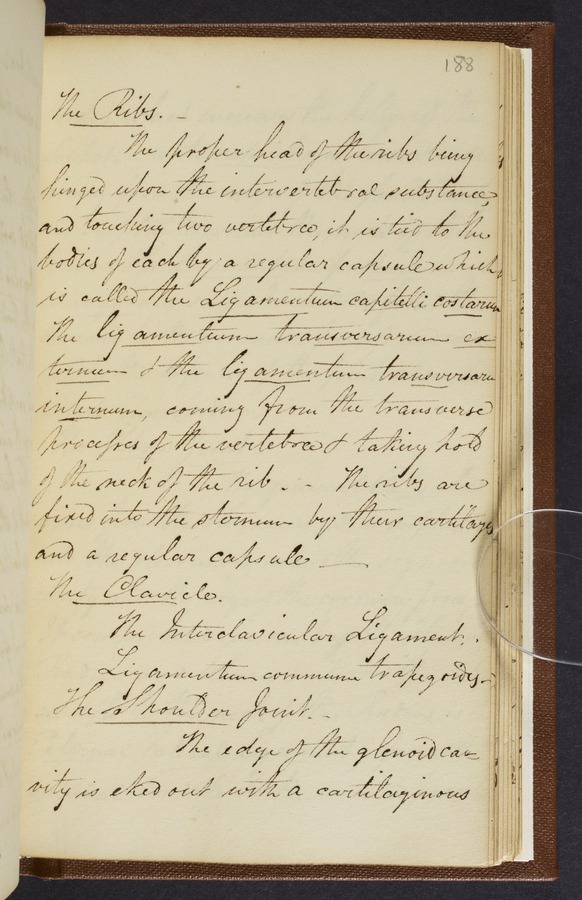 188
The Ribs. -
The proper head of the ribs being
hinged upon the intervertebral substance,
and touching two vertebræ, it is tied to the
bodies of each by a regular capsule which
is called the Ligamentum capitelli costarum
The ligamentum transversarum ex
ternum & the ligamentum transversaru
internum, coming from the transverse
processes of the vertebrae & taking hold
of the neck of the rib. - The ribs are
fixed into the sternum by their cartilages
and a regular capsule -
The Clavicle.
The Interclavicular Ligament.
Ligamentum commune trapezoides -
The Shoulder Joint. -
The edge of the glenoid ca-
vity is eked out with a cartilaginous